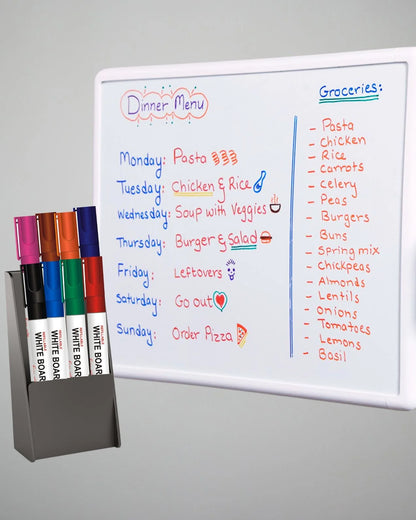 Dinner Menu
Monday: Pasta
Tuesday: Chicken & Rice
Wednesday: Soup with Veggies
Thursday: Burger & Salad
Friday: Leftovers
Saturday: Go out
Sunday: Order Pizza
Groceries:
- Pasta
- Chicken
- Rice
- Carrots
- Celery
- Peas
- Burgers
- Buns
- Spring mix
- Chickpeas
- Almonds
- Lentils
- Onions
- Tomatoes
- Lemons
- Basil
WHITE BOAR
WHITE BOAR
WHITE BOAR
WHITE BOAR